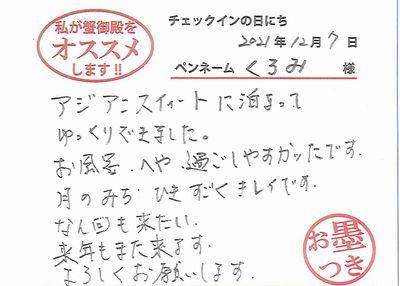 私が蟹御殿を
オススメ
します!!
チェックインの日にち
2021年12月7日
ペンネーム くるみ 様
アジアンスイートに泊まって
ゆっくりできました。
お風呂、へや、過ごしやすかったです。
月のみちひきすごくキレイです。
なん回も来たい。
来年もまた来ます。
よろしくお願いします。
お墨
つき